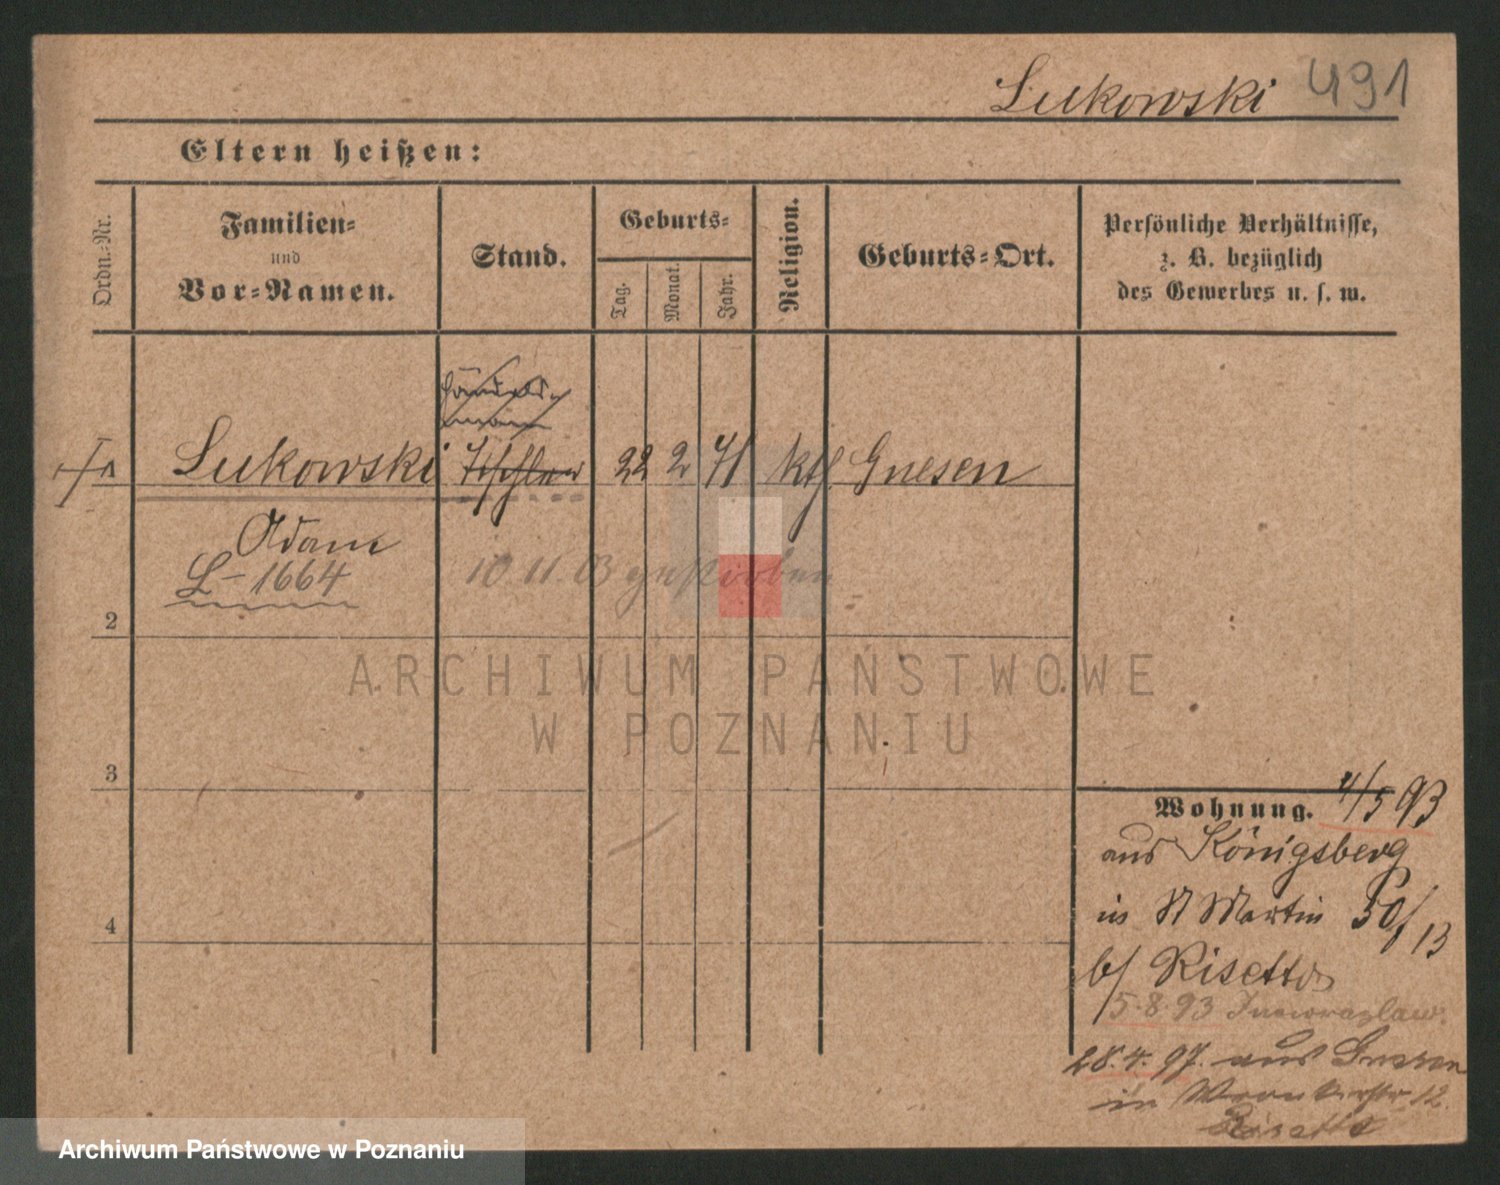 Lukowski 491
Eltern heißen:
Ordn.-Nr.
Familien-
und
Vor-Namen.
Stand.
Geburts-
Tag.
Monat.
Jahr.
Religion.
Geburts-Ort.
Persönliche Verhältnisse,
z. B. bezüglich
des Gewerbes u. s. w.
1 Lukowski Tischler 22 2 71 kth. Gnesen
Adam
L-1664
10 11 03 gestorben
2
3
4
Wohnung. 4/5 93
aus Königsberg
in St Martin 50/13
b/ Risetto
5.8.93 Inowrazlaw.
28.4.97. aus Gnesen
in 12.
ARCHIWUM PAŃSTWOWE
W POZNANIU
Archiwum Państwowe w Poznaniu